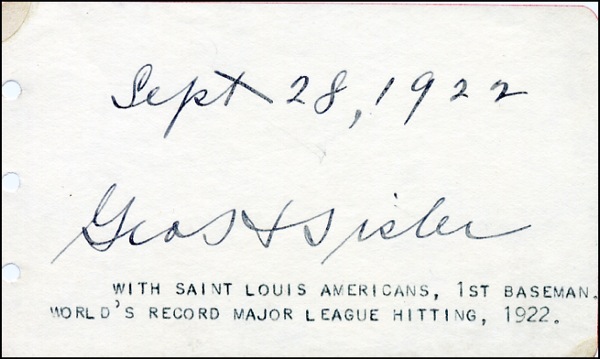 Sept 28, 1922
Geo H Sisler
WITH SAINT LOUIS AMERICANS, 1ST BASEMAN.
WORLD'S RECORD MAJOR LEAGUE HITTING, 1922.